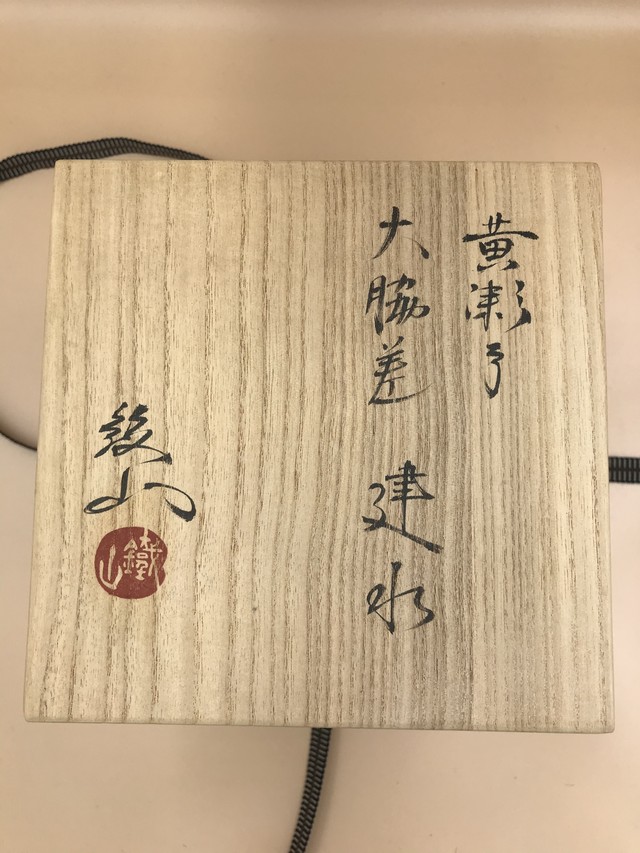 黄瀬戸
大脇差 建水
山
鐵山